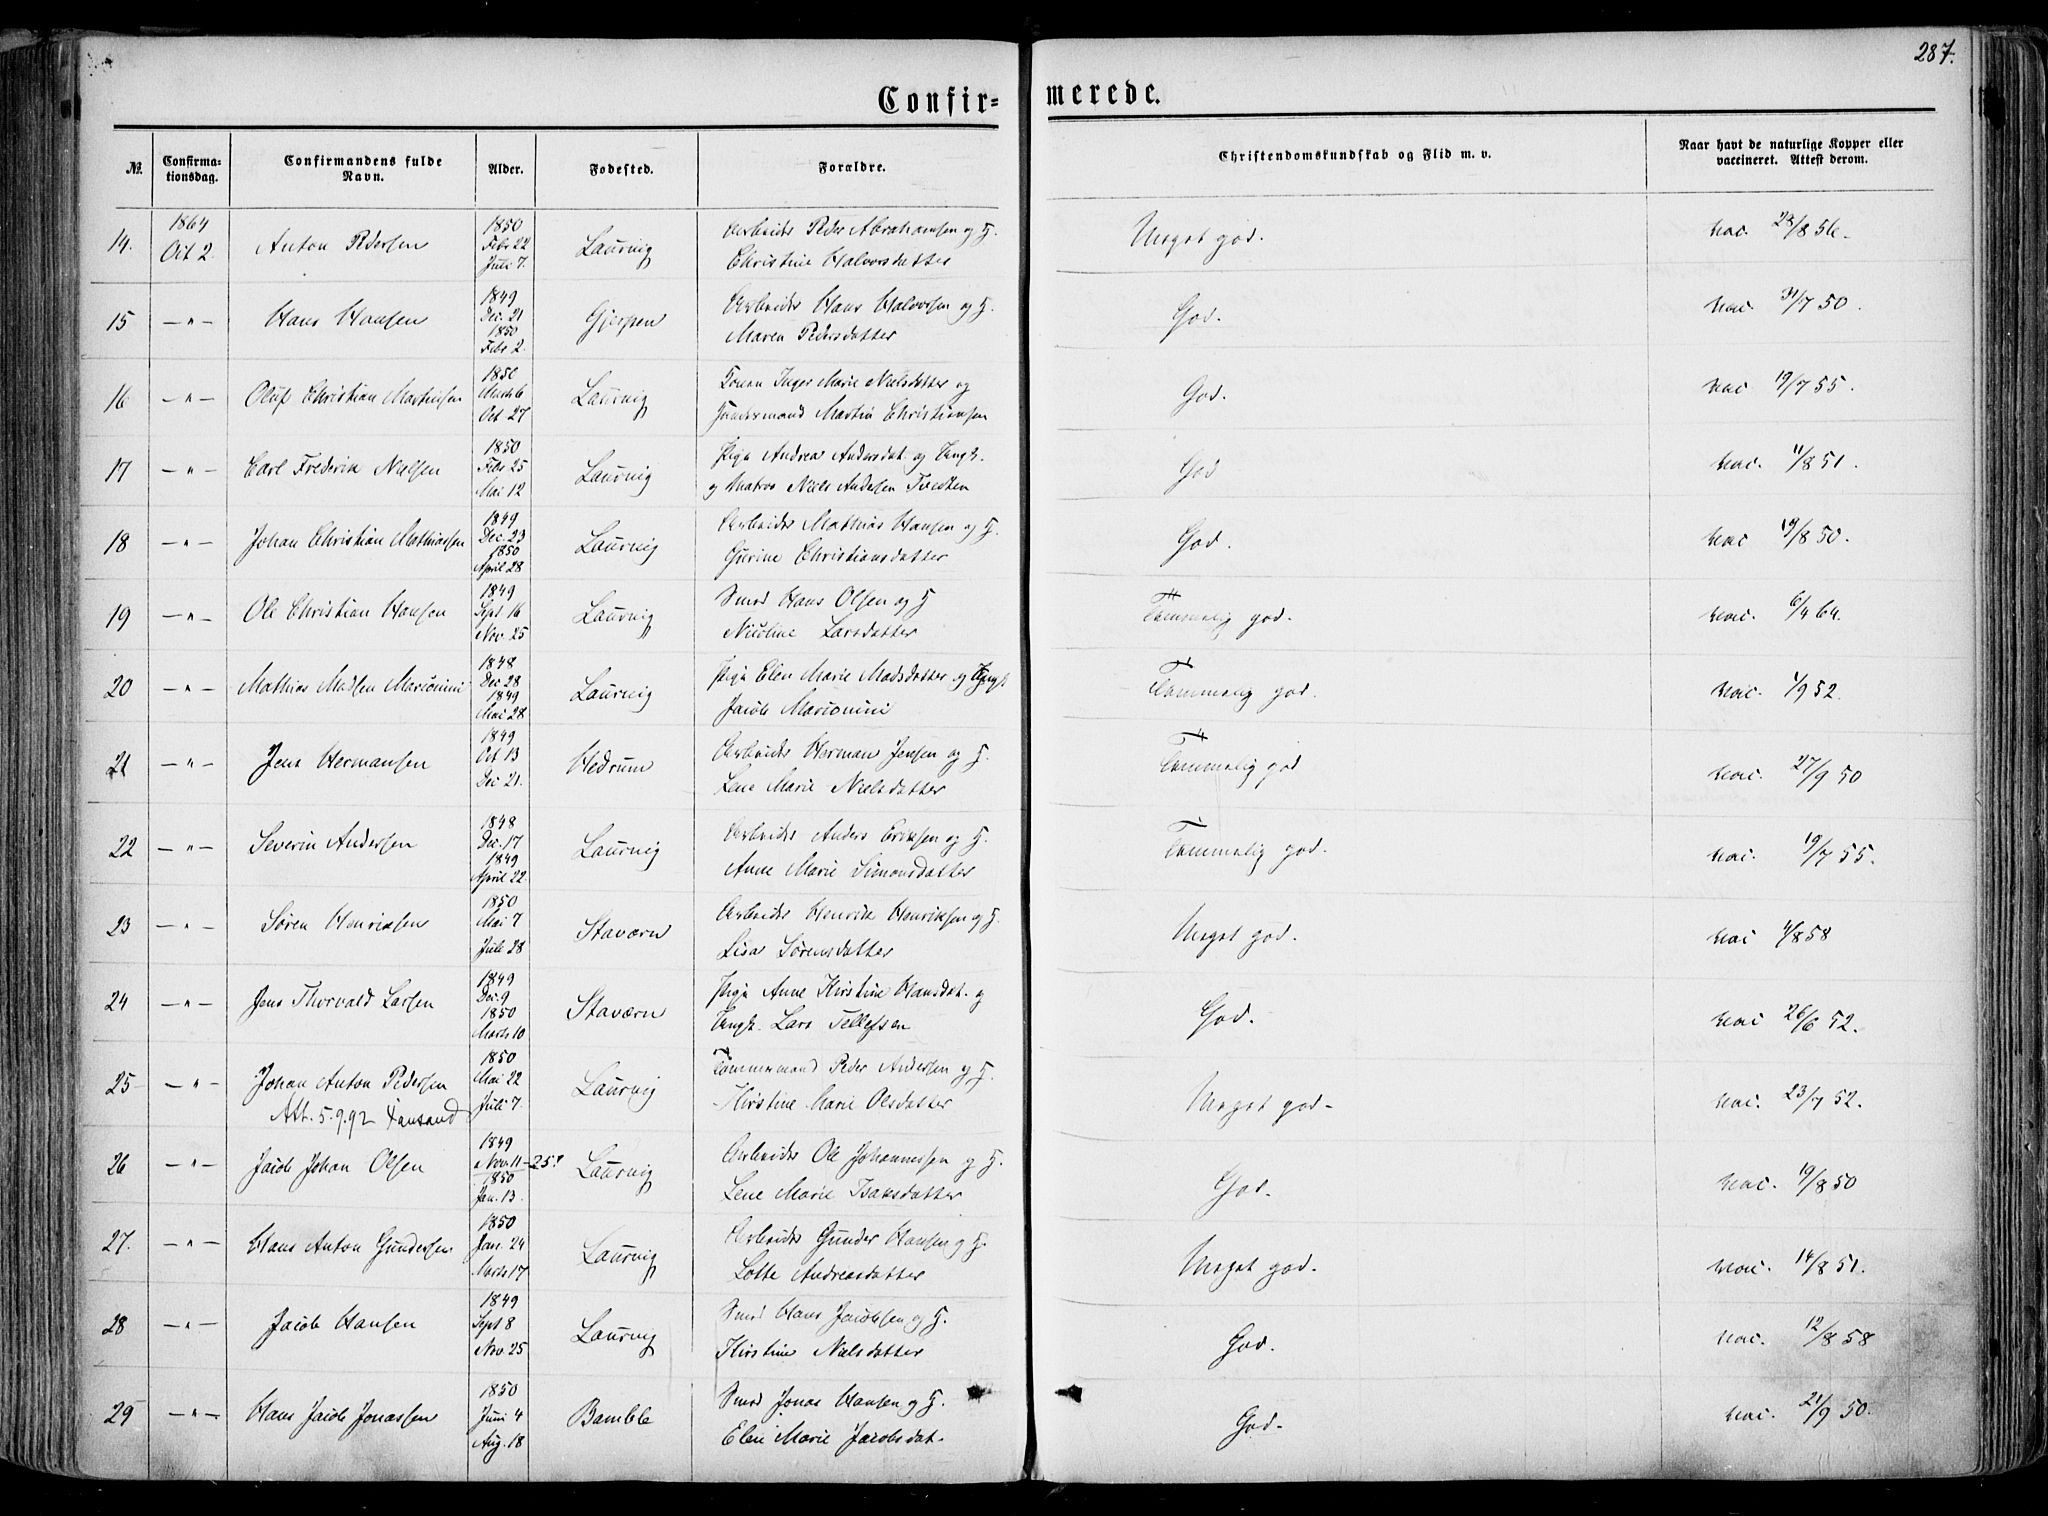 287.
Confirmerede.
№. Confirmationsdag. Confirmandens fulde Navn. Alder. Fødested. Forældre. Christendomskundskab og Flid m. v. Naar havt de naturlige Kopper eller vaccineret. Attest derom.
14. 1864 Oct 2. Anton Pedersen 1850 Febr 22 Juli 7. Laurvig Arbeider Peder Abrahamsen og H. Meget god. vac. 28/8 56.
Christine Halvorsdatter
15 —"— Hans Hansen 1849 Dec. 21 1850 Febr 2. Gjerpen Arbeider Hans Halvorsen og H. God. vac. 31/7 50.
Maren Pedersdatter
16 —"— Oluf Christian Martinsen 1850 Marts 6 Oct 27 Laurvig Konen Inger Marie Nielsdatter og God. vac 19/7 55.
Martin Christiansen
17 —"— Carl Frederik Nielsen 1850 Febr 25 Mai 12 Laurvig Pige Andrea Andersdat. og Ungk. God vac. 11/8 51.
og Matros Niels Andersen Tvedten
18 —"— Johan Christian Mathiassen 1849 Dec. 23 1850 April 28 Laurvig Arbeider Mathias Hansen og H. God. vac 19/8 50.
Gurine Christiansdatter
19 —"— Ole Christian Hansen 1849 Sept 16 Nov. 25 Laurvig Smed Hans Olsen og H Temmelig god. vac. 6/4 64.
Nicoline Larsdatter
20 —"— Mathias Madsen Marconini 1848 Dec 28 1849 Mai 28 Laurvig Pige Elen Marie Madsdatter og Ungk. Temmelig god. vac. 1/9 52.
Jacob Marconini
21 —"— Jens Hermansen 1849 Oct 13 Dec 21. Hedrum Arbeider Herman Jensen og H. Temmelig god vac. 27/9 50
Lene Marie Nielsdatter
22 —"— Severin Andersen 1848 Dec. 17 1849 April 22. Laurvig Arbeider Anders Eriksen og H. Temmelig god. vac. 19/7 55.
Anne Marie Simonsdatter
23 —"— Søren Henriksen 1850 Mai 7 Juli 28 Staværn Arbeider Henrik Henriksen og H. Meget god. vac 4/8 58
Lisa Sørensdatter
24 —"— Jens Thorvald Larsen 1849 Dec. 9 1850 Marts 10 Staværn Pige Anne Kirstine Hansdat. og God. vac 26/6 52.
Ungk. Lars Tellefsen
25 —"— Johan Anton Pedersen 1850 Mai 22 Juli 7. Laurvig Tømmermand Peder Andersen og H. Meget god. vac. 23/7 52.
Att. 5.9.92 Kirstine Marie Olsdatter
26 —"— Jacob Johan Olsen 1849 Nov. 11-25? 1850 Jan. 13. Laurvig Arbeider Ole Johannessen og H. God. vac. 19/8 50
Lene Marie Isaksdatter
27. —"— Hans Anton Gundersen 1850 Jan. 24 Marts 17 Laurvig Arbeider Gunder Hansen og H. Meget god. vac. 14/8 51.
Lotte Andreasdatter
28 —"— Jacob Hansen 1849 Sept 8 Nov 25 Laurvig Smed Hans Jacobsen og H. God. vac. 12/8 58
Kirstine Nielsdatter
29 —"— Hans Jacob Jonassen 1850 Juni 4 Aug. 18 Bamble Smed Jonas Hansen og H. God. vac. 21/9 50.
Elen Marie Jacobsdat.